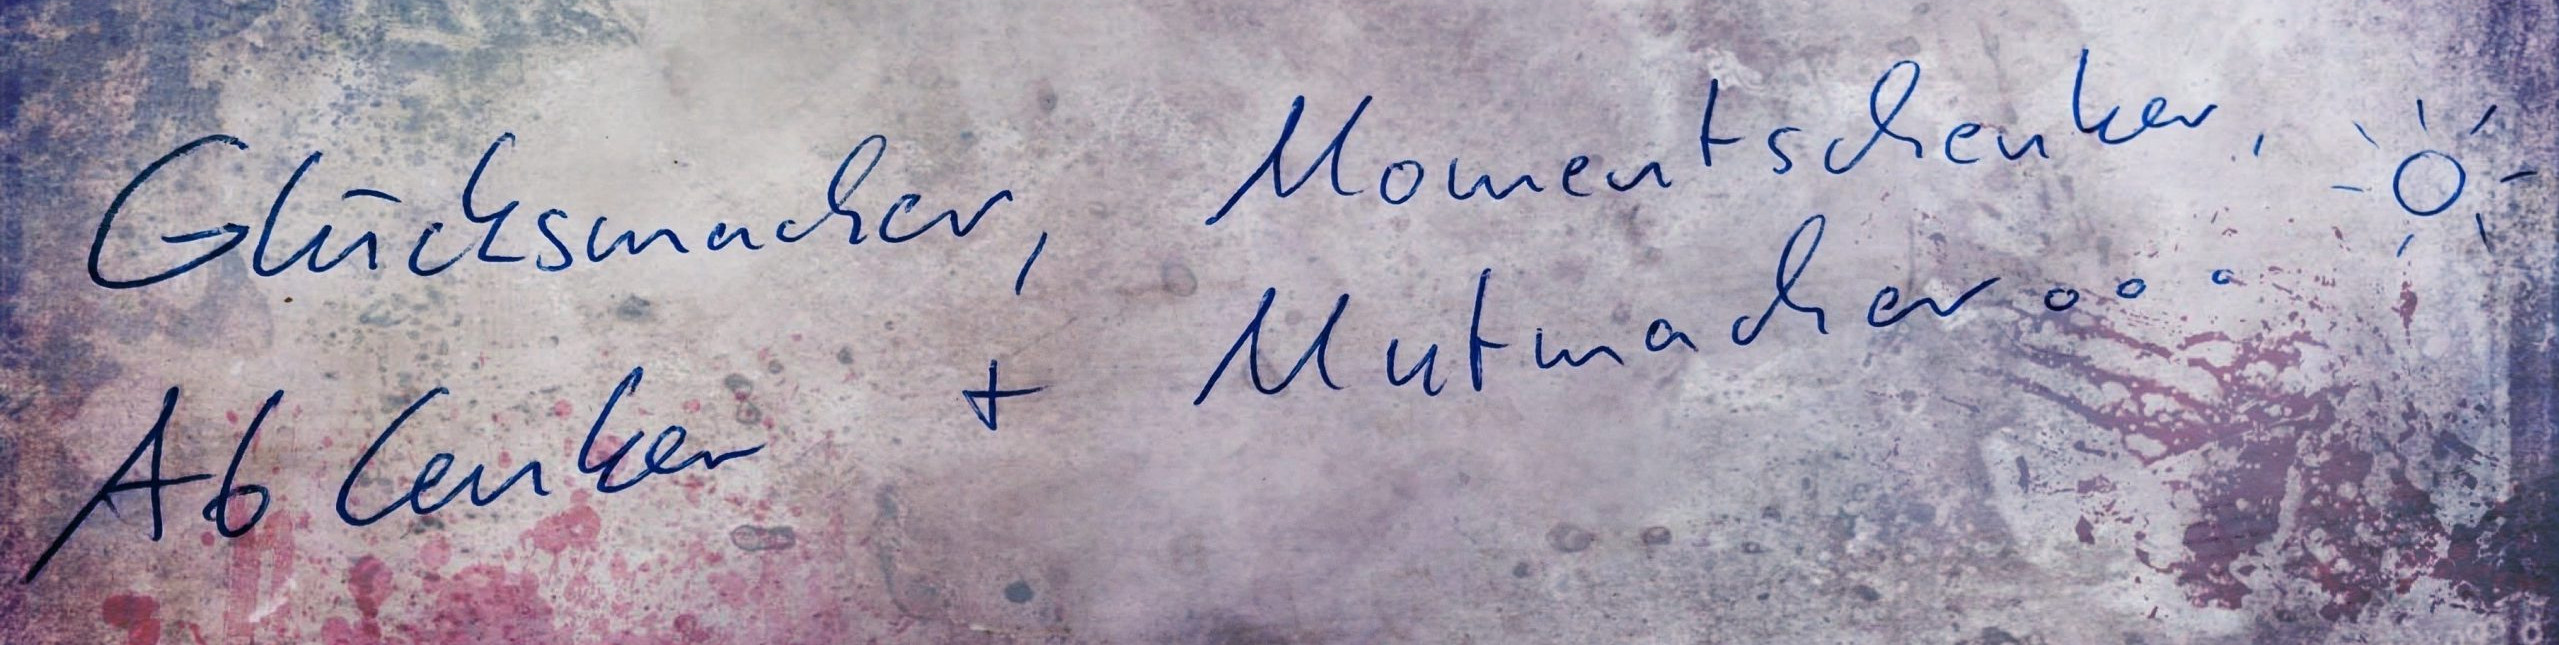 Glücksmacher, Momentschenker,
Ablenker + Mutmacher...